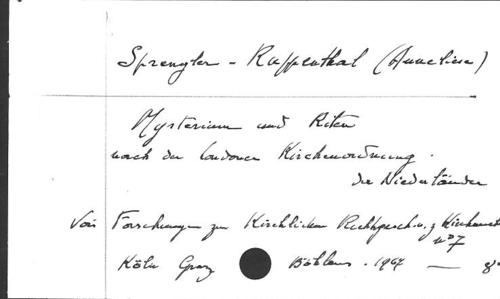 Sprengler - Ruppenthal (Anneliese)
Mysterium und Riten
nach der Londoner Kirchenordnung.
der Niederländer
Voir Forschungen zur Kirchlichen Rechtsgesch. u. z
n° 7
Köln Graz Böhlaus. 1967 — 8°